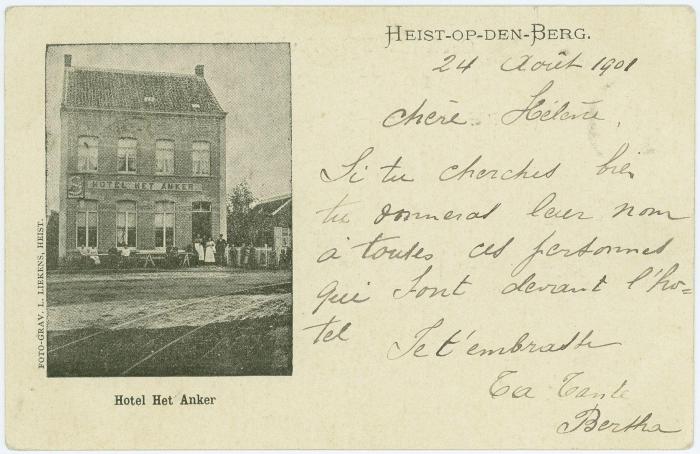 HEIST-OP-DEN-BERG.
24 Août 1901
Chère Hélène,
Si tu cherches bien
tu donneras leur nom
à toutes ces personnes
qui sont devant l'hô-
tel
Je t'embrasse
Ta Tante
Bertha
HOTEL HET ANKER
FOTO-GRAV. L. LIEKENS, HEIST.
Hotel Het Anker